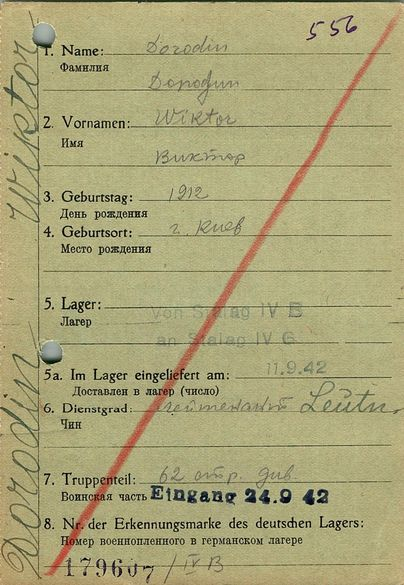 556
1. Name: Dorodin
Фамилия
Дородин
2. Vornamen: Wiktor
Имя
Виктор
3. Geburtstag: 1912
День рождения
4. Geburtsort: г. Киев
Место рождения
5. Lager: Von Stalag IV B
Лагерь
an Stalag IV G
5a. Im Lager eingeliefert am: 11.9.42
Доставлен в лагерь (число)
6. Dienstgrad: лейтенант Leutn.
Чин
7. Truppenteil: 62 стр. див.
Воинская часть Eingang 24.9 42
8. Nr. der Erkennungsmarke des deutschen Lagers:
Номер военнопленного в германском лагере
179607 / IV B
Dorodin Wiktor